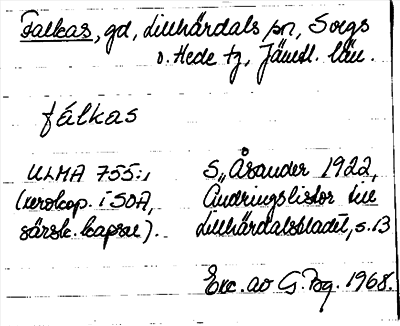 Falkas, gd, Lillhärdals sn, Svegs
o. Hede tg, Jämtl. län.
fálkas
ULMA 755:1 S. Åsander 1922,
(xeroxkop. i SOA, Ändringslistor till
särsk. kapsel). Lillhärdalsbladet, s. 13
Exc. av G. Bg. 1968.